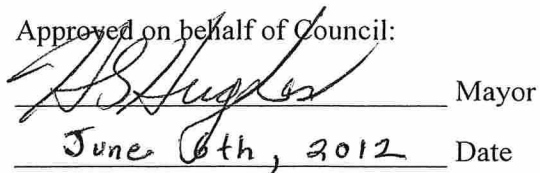 Approved on behalf of Council:
HSHughes Mayor
June 6th, 2012 Date